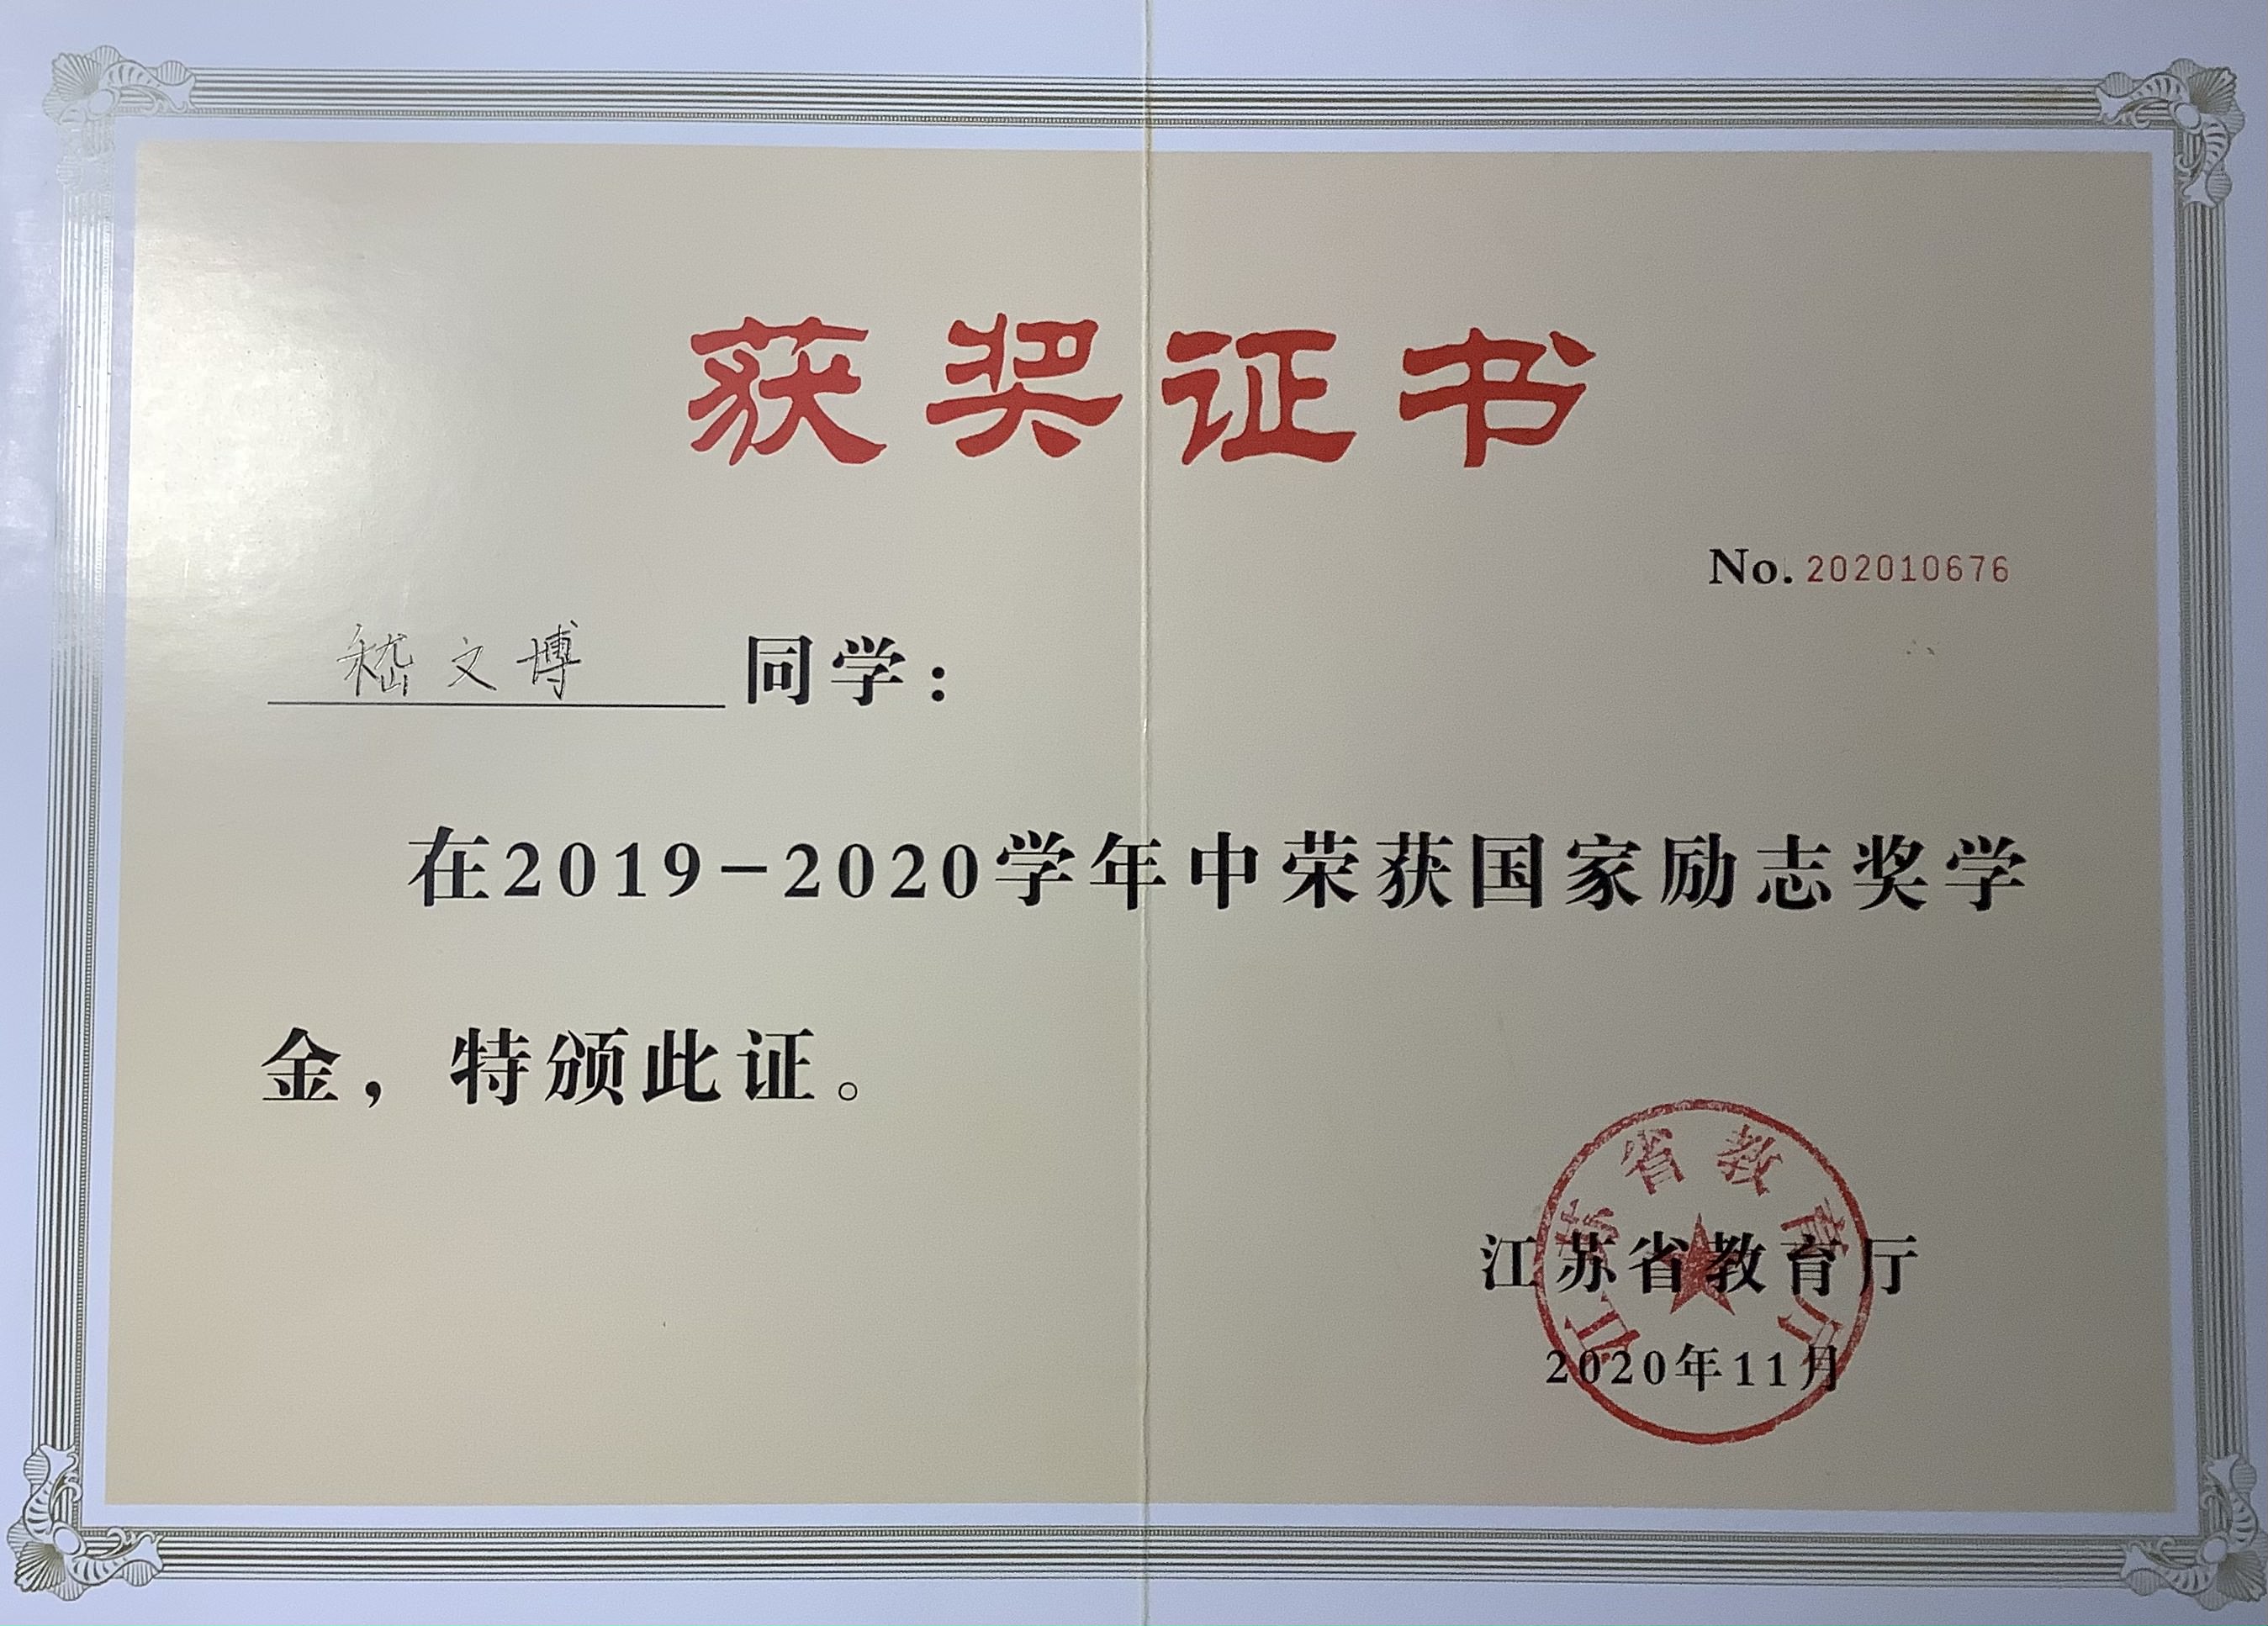 获奖证书
No. 202010676
嵇文博 同学：
在2019-2020学年中荣获国家励志奖学
金，特颁此证。
江苏省教育厅
江苏省教育厅
2020年11月